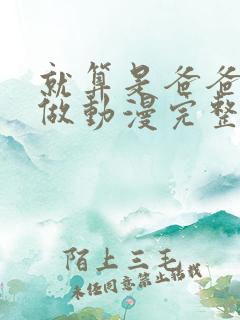 就算是爸爸
做動漫完整
陌上三毛
未经同意禁止搭载